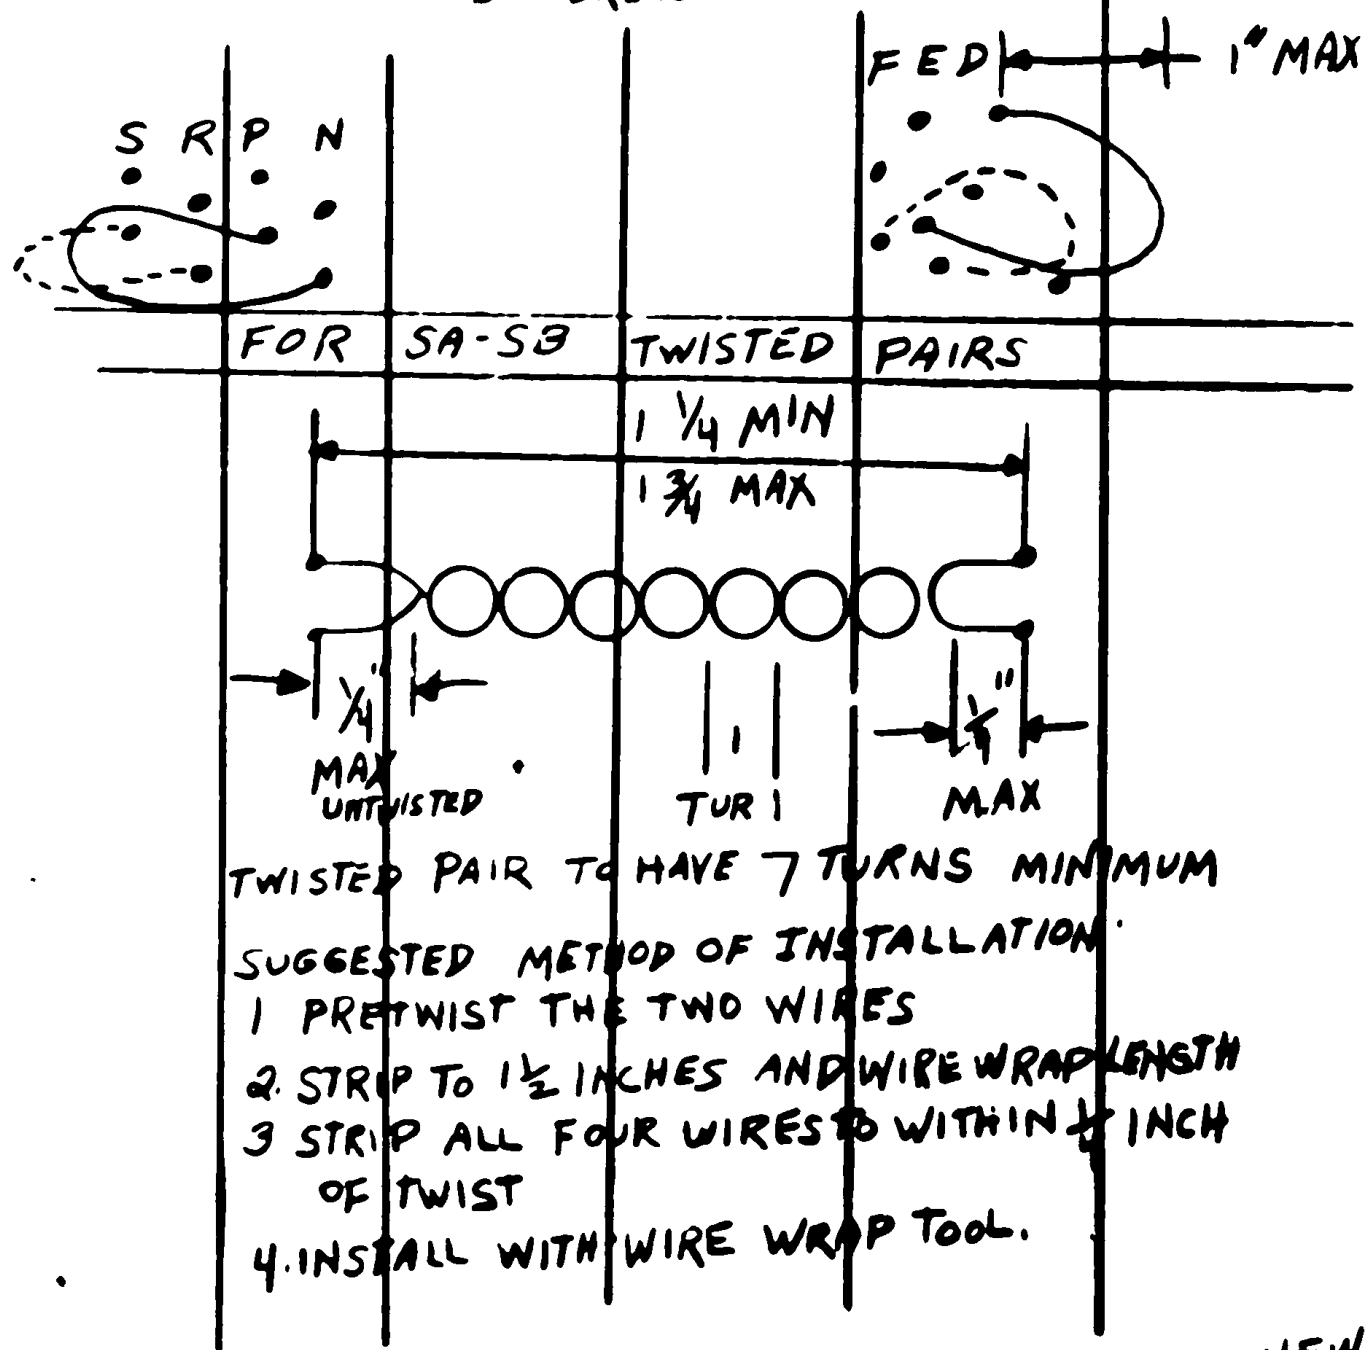 FED 1" MAX
S R P N
FOR SA-SB TWISTED PAIRS
1 1/4 MIN
1 3/4 MAX
1/4" 1/4"
1
MAX MAX
UNTWISTED TUR1
TWISTED PAIR TO HAVE 7 TURNS MINIMUM
SUGGESTED METHOD OF INSTALLATION
1 PRETWIST THE TWO WIRES
2. STRIP TO 1 1/2 INCHES AND WIRE WRAP LENGTH
3 STRIP ALL FOUR WIRES TO WITHIN INCH
OF TWIST
4. INSTALL WITH WIRE WRAP TOOL.